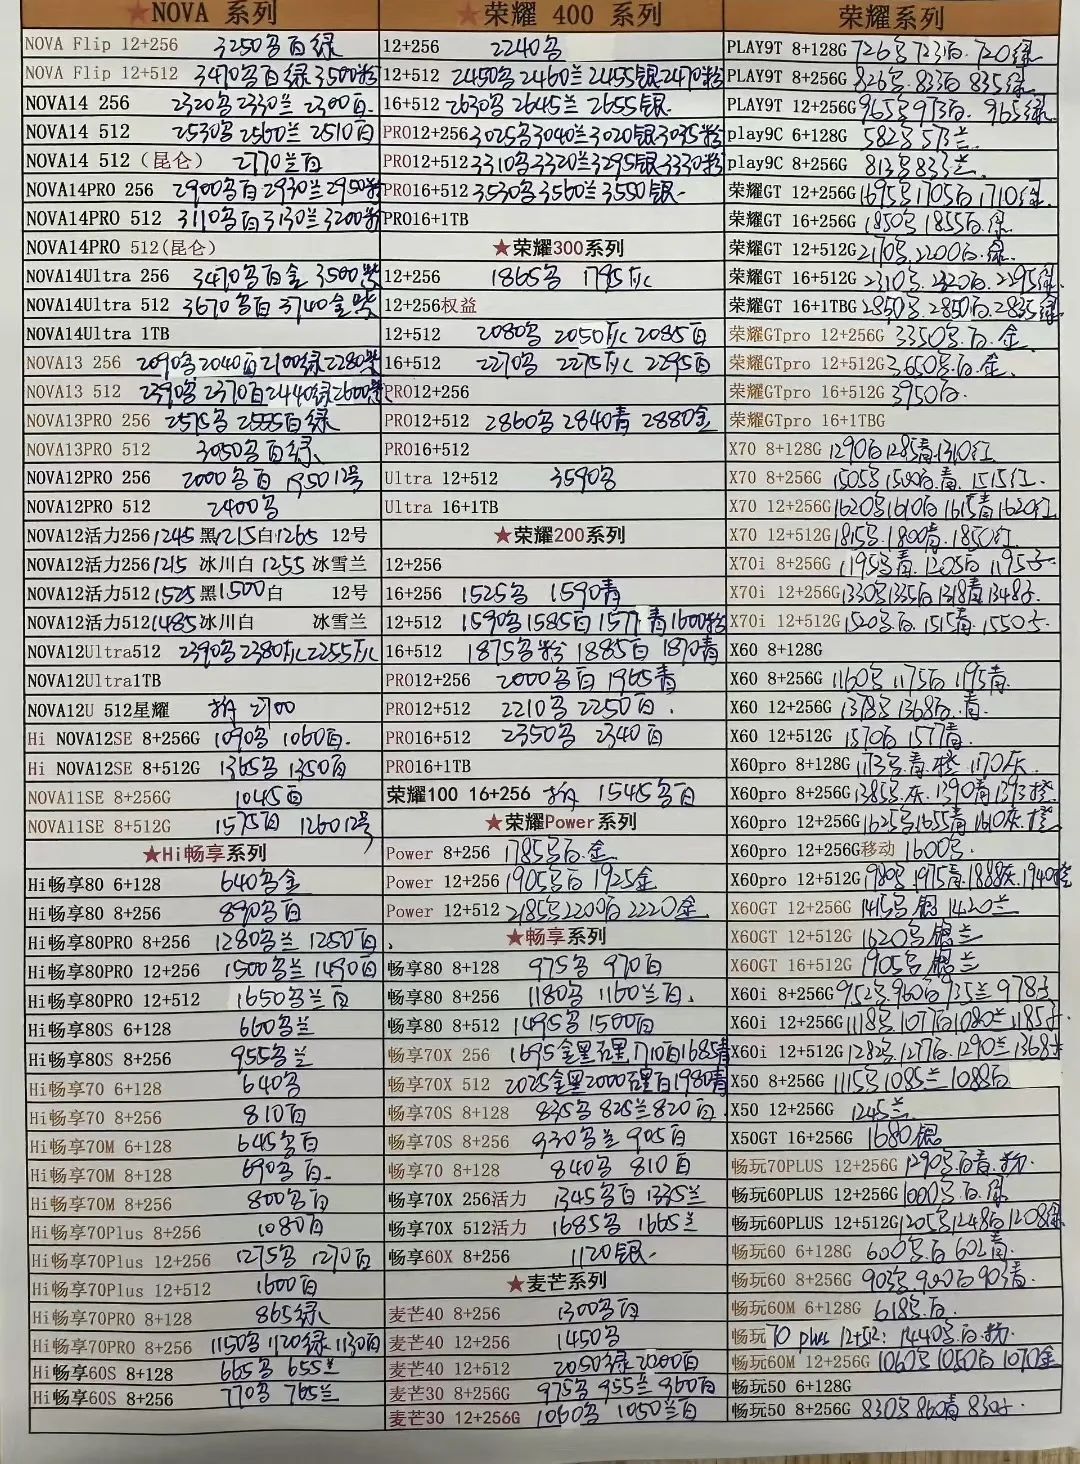 ★NOVA 系列
NOVA Flip 12+256 3250名百绿
NOVA Flip 12+512 3470名百绿 3500粉
NOVA14 256 2320名 2330兰 2300百
NOVA14 512 2530名 2560兰 2510百
NOVA14 512（昆仑） 2770兰百
NOVA14PRO 256 2900名百 2930兰 2950粉
NOVA14PRO 512 3110名百 3130兰 3200粉
NOVA14PRO 512(昆仑)
NOVA14Ultra 256 3470名百金 3500紫
NOVA14Ultra 512 3670名百 3740金紫
NOVA14Ultra 1TB
NOVA13 256 2090名 2040百 2100绿 2280紫
NOVA13 512 2390名 2370百 2440绿 2600紫
NOVA13PRO 256 2575名 2555百绿
NOVA13PRO 512 3050名百绿
NOVA12PRO 256 2000名百 1950 12号
NOVA12PRO 512 2400名
NOVA12活力256 1245 黑1215白1265 12号
NOVA12活力256 1215 冰川白 1255 冰雪兰
NOVA12活力512 1525 黑1500白 12号
NOVA12活力512 1485 冰川白 冰雪兰
NOVA12Ultra512 2390名 2380灰 2255灰
NOVA12Ultra1TB
NOVA12U 512星耀 拆 2700
Hi NOVA12SE 8+256G 1090名 1060百
Hi NOVA12SE 8+512G 1365名 1350百
NOVA11SE 8+256G 1045百
NOVA11SE 8+512G 1575百 1260 12号
★Hi畅享系列
Hi畅享80 6+128 640名金
Hi畅享80 8+256 890名百
Hi畅享80PRO 8+256 1280名兰 1250百
Hi畅享80PRO 12+256 1500名兰 1490百
Hi畅享80PRO 12+512 1650名兰百
Hi畅享80S 6+128 660名兰
Hi畅享80S 8+256 955名兰
Hi畅享70 6+128 640名
Hi畅享70 8+256 810百
Hi畅享70M 6+128 645名百
Hi畅享70M 8+128 690名百
Hi畅享70M 8+256 800名百
Hi畅享70Plus 8+256 1080百
Hi畅享70Plus 12+256 1275名 1270百
Hi畅享70Plus 12+512 1600百
Hi畅享70PRO 8+128 865绿
Hi畅享70PRO 8+256 1150名 1120绿 1130百
Hi畅享60S 8+128 665名 655兰
Hi畅享60S 8+256 770名 765兰
★荣耀 400 系列
12+256 2240名
12+512 2450名 2460兰 2455银 2470粉
16+512 2630名 2645兰 2655银
PRO12+256 3025名 3040兰 3020银 3035粉
PRO12+512 3310名 3320兰 3295银 3330粉
PRO16+512 3530名 3560兰 3550银
PRO16+1TB
★荣耀300系列
12+256 1865名 1795灰
12+256权益
12+512 2080名 2050灰 2085百
16+512 2270名 2275灰 2295百
PRO12+256
PRO12+512 2860名 2840青 2880金
PRO16+512
Ultra 12+512 3590名
Ultra 16+1TB
★荣耀200系列
12+256
16+256 1525名 1590青
12+512 1590名 1585百 1577青 1600粉
16+512 1875名粉 1885百 1870青
PRO12+256 2000名百 1965青
PRO12+512 2210名 2250百
PRO16+512 2350名 2340百
PRO16+1TB
荣耀100 16+256 拆 1545名百
★荣耀Power系列
Power 8+256 1785名百金
Power 12+256 1905名百 1925金
Power 12+512 2185名 2200百 2220金
★畅享系列
畅享80 8+128 975名 970百
畅享80 8+256 1180名 1160兰百
畅享80 8+512 1495名 1500百
畅享70X 256 1695金黑石黑 1710百 1685青
畅享70X 512 2025金黑 2000石黑百 1980青
畅享70S 8+128 835名 825兰 820百
畅享70S 8+256 930名兰 905百
畅享70 8+128 840名 810百
畅享70X 256活力 1345名百 1335兰
畅享70X 512活力 1685名 1665兰
畅享60X 8+256 1120银
★麦芒系列
麦芒40 8+256 1300名百
麦芒40 12+256 1450名
麦芒40 12+512 2050名绿 2000百
麦芒30 8+256G 975名 955兰 960百
麦芒30 12+256G 1060名 1050兰百
荣耀系列
PLAY9T 8+128G 726名 723百 720绿
PLAY9T 8+256G 826名 833百 835绿
PLAY9T 12+256G 965名 973百 965绿
play9C 6+128G 582名 573兰
play9C 8+256G 813名 833兰
荣耀GT 12+256G 1695名 1705百 1710绿
荣耀GT 16+256G 1850名 1855百绿
荣耀GT 12+512G 2170名 2200百绿
荣耀GT 16+512G 2310名 2320百 2295绿
荣耀GT 16+1TBG 2850名 2850百 2835绿
荣耀GTpro 12+256G 3350名百金
荣耀GTpro 12+512G 3650名百金
荣耀GTpro 16+512G 3950百
荣耀GTpro 16+1TBG
X70 8+128G 1290百 1285青 1310红
X70 8+256G 1505名 1500百青 1515红
X70 12+256G 1620名 1610百 1615青 1620红
X70 12+512G 1815名 1800青 1850红
X70i 8+256G 1195名青 1205百 1195子
X70i 12+256G 1330名 1335百 1318青 1348子
X70i 12+512G 1520名百 1515青 1550子
X60 8+128G
X60 8+256G 1160名 1175百 1195青
X60 12+256G 1378名 1368百青
X60 12+512G 1570百 1577青
X60pro 8+128G 1173名青橙 1170灰
X60pro 8+256G 1385名灰 1390青 1393橙
X60pro 12+256G 1625名 1655青 1610灰橙
X60pro 12+256G移动 1600名
X60pro 12+512G 1980名 1975青 1888灰 1940橙
X60GT 12+256G 1415名银 1420兰
X60GT 12+512G 1620名银兰
X60GT 16+512G 1905名银兰
X60i 8+256G 952名 960百 935兰 978子
X60i 12+256G 1118名 1077百 1080兰 1185子
X60i 12+512G 1282名 1277百 1290兰 1368子
X50 8+256G 1115名 1085兰 1088百
X50 12+256G 1245兰
X50GT 16+256G 1680银
畅玩70PLUS 12+256G 1290名百青粉
畅玩60PLUS 12+256G 1000名百绿
畅玩60PLUS 12+512G 1205名 1248百 1208绿
畅玩60 6+128G 600名百 602青
畅玩60 8+256G 903名 900百 903青
畅玩60M 6+128G 618名百
畅玩70 plus 12+512: 1440名百粉
畅玩60M 12+256G 1060名 1050百 1070金
畅玩50 6+128G
畅玩50 8+256G 830名 860青 830子